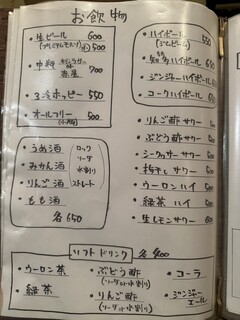 お飲物
・生ビール 600
(プレミアムモルツ) ㊥500
・中瓶 700
・3冷ホッピー 550
・オールフリー 500
(小瓶)
・ハイボール 550
(ジムビーム)
・知多ハイボール 650
・ジンジャーハイボール
・コークハイボール 600
・りんご酢サワー
・ぶどう酢サワー
・シークヮーサーサワー
・梅干しサワー
・ウーロンハイ 500
・緑茶ハイ 500
・生レモンサワー 600
・うめ酒
・みかん酒
・りんご酒
・もも酒
ロック
ソーダ
水割り
ストレート
各650
ソフトドリンク 各400
・ウーロン茶
・緑茶
・ぶどう酢
(ソーダor水割り)
・りんご酢
(ソーダor水割り)
・コーラ
・ジンジャーエール